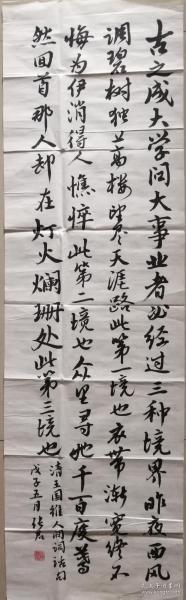 古之成大学问大事业者必经过三种境界昨夜西风
凋碧树独上高楼望尽天涯路此第一境也衣带渐宽终不
悔为伊消得人憔悴此第二境也众里寻她千百度蓦
然回首那人却在灯火阑珊处此第三境也
清王国维人间词话句
戊子五月